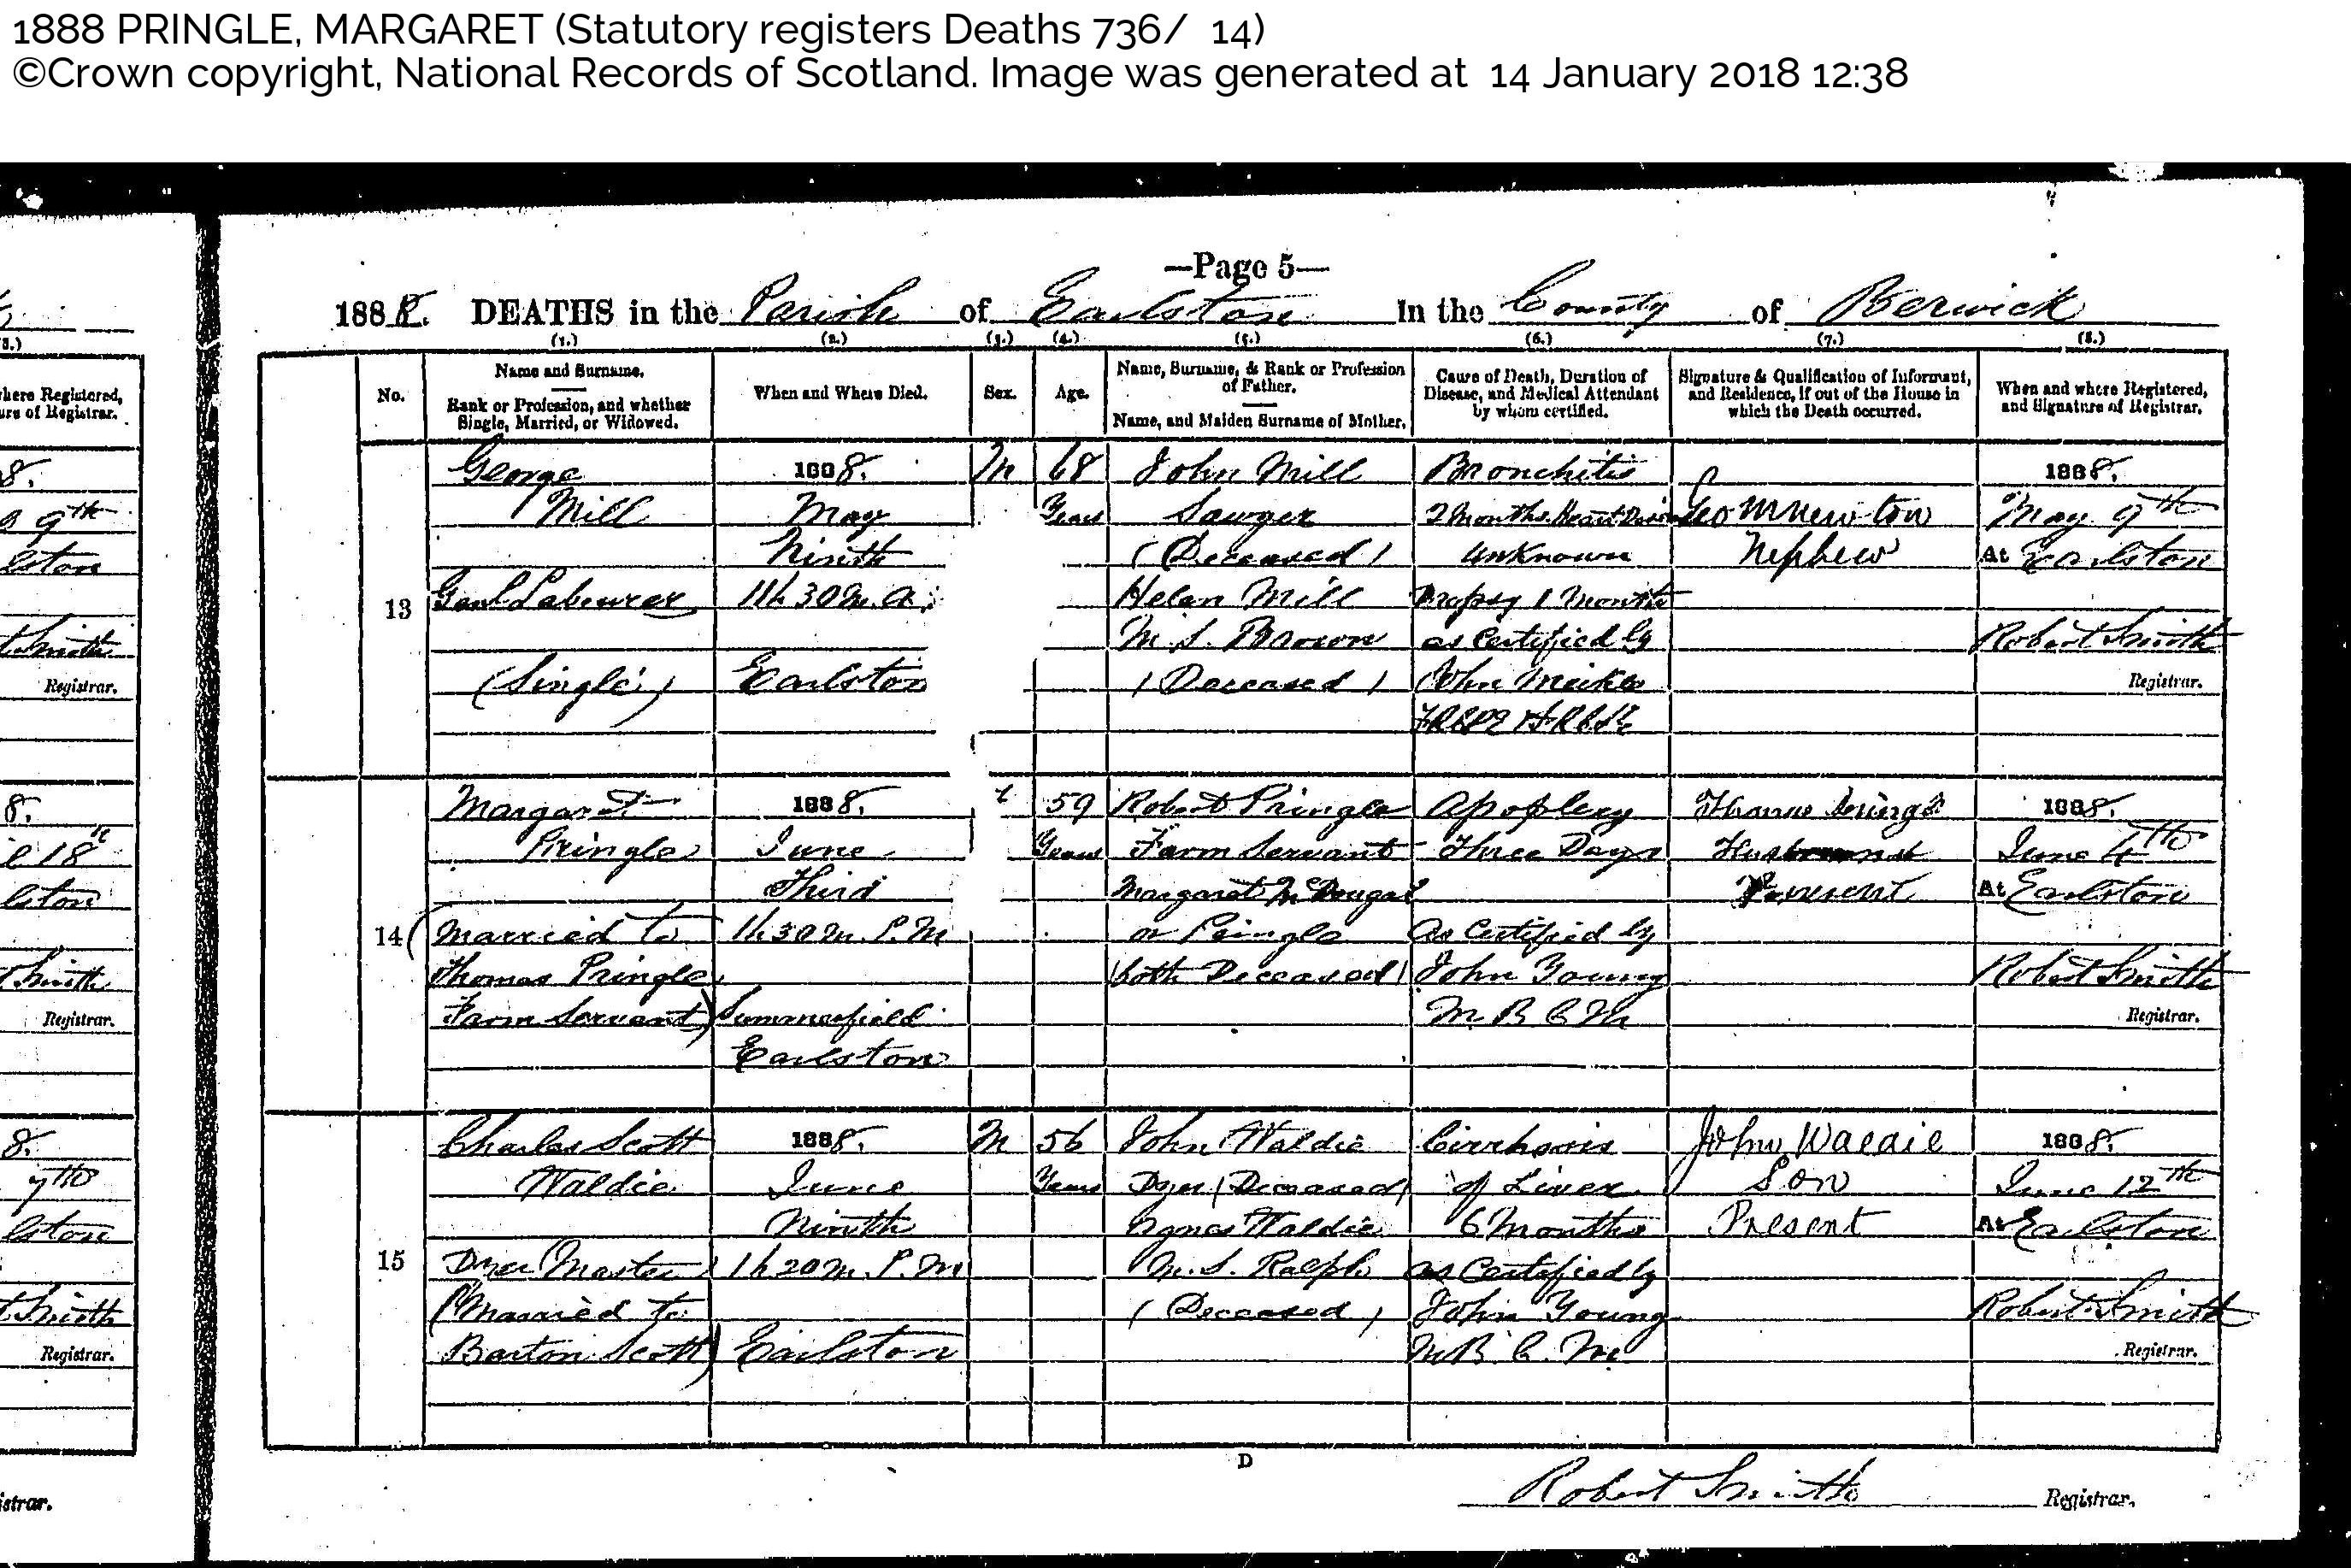 1888 PRINGLE, MARGARET (Statutory registers Deaths 736/ 14)
©Crown copyright, National Records of Scotland. Image was generated at 14 January 2018 12:38
—Page 5—
1888. DEATHS in the Parish of Earlston in the County of Berwick
(1.) (2.) (3.) (4.) (5.) (6.) (7.) (8.)
No.
Name and Surname.
Rank or Profession, and whether
Single, Married, or Widowed.
When and Where Died.
Sex.
Age.
Name, Surname, & Rank or Profession
of Father.
Name, and Maiden Surname of Mother.
Cause of Death, Duration of
Disease, and Medical Attendant
by whom certified.
Signature & Qualification of Informant,
and Residence, if out of the House in
which the Death occurred.
When and where Registered,
and Signature of Registrar.
13
George
Mill
Genl Labourer
(Single)
1888.
May
Ninth
11h 30m. A.
Earlston
M
68
Years
John Mill
Sawyer
(Deceased)
Helen Mill
M. S. Brown
(Deceased)
Bronchitis
2 Months. Heart
Unknown
Dropsy 1 Month
as Certified by
John Meikle
Geo M Newton
Nephew
1888.
May 9th
At Earlston
Robert Smith
Registrar.
14
Margaret
Pringle
(Married to
Thomas Pringle
Farm Servant)
1888.
June
Third
1h 30m. P.M
Summerfield
Earlston
59
Years
Robert Pringle
Farm Servant
Margaret McDougal
or Pringle
(both Deceased)
Apoplexy
Three Days
As Certified by
John Young
M B C M
Thomas Pringle
Husband
Present
1888.
June 4th
At Earlston
Robert Smith
Registrar.
15
Charles Scott
Waldie
Dyer Master
(Married to
Barton Scott)
1888.
June
Ninth
1h 20m. P.M
Earlston
M
56
Years
John Waldie
Dyer (Deceased)
Agnes Waldie
M. S. Ralph
(Deceased)
Cirrhosis
of Liver
6 Months
as Certified by
John Young
M B C. M.
John Waldie
Son
Present
1888.
June 12th
At Earlston
Robert Smith
Registrar.
D
Robert Smith Registrar.